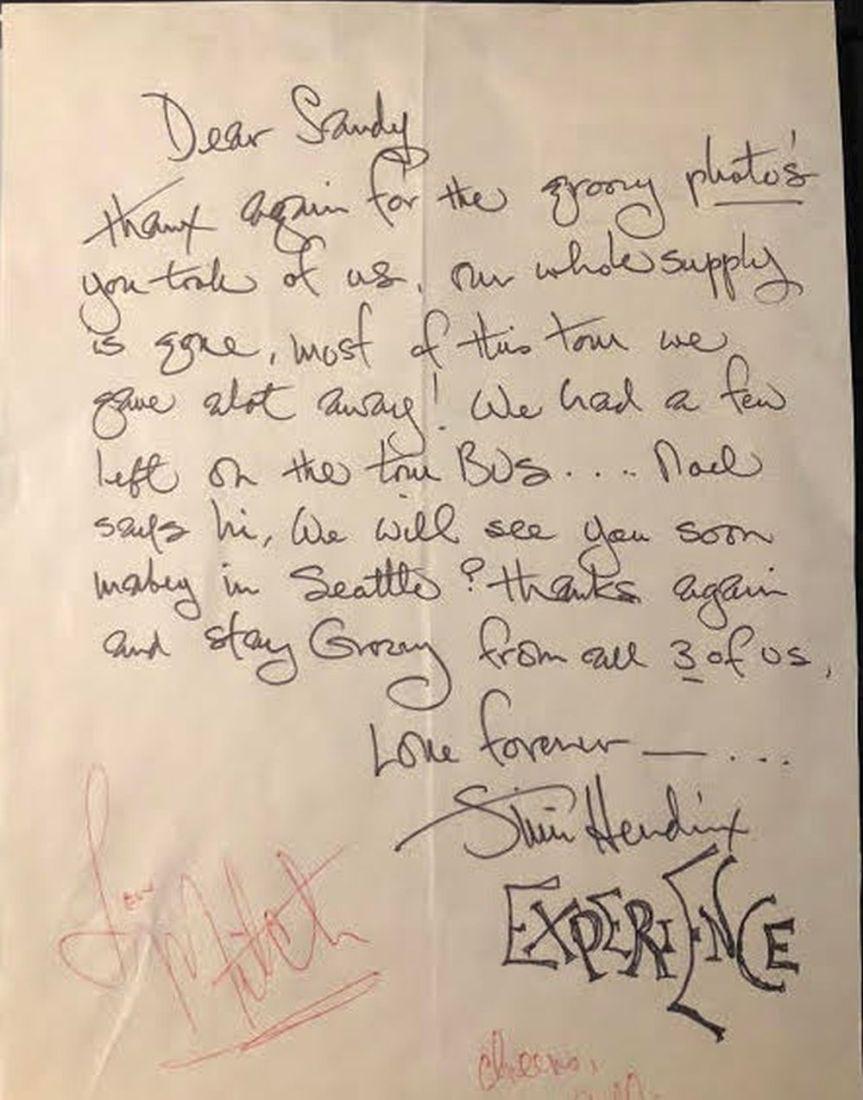 Dear Sandy
thanx again for the groovy photo's
you took of us, our whole supply
is gone, most of this tour we
gave alot away! We had a few
left on the tour BUS.... Noel
says hi, We will see you soon
mabey in Seattle? thanks again
and stay Groovy from all 3 of us,
Love forever — ...
Jimi Hendrix
EXPERIENCE
Love
Mitch
cheers,